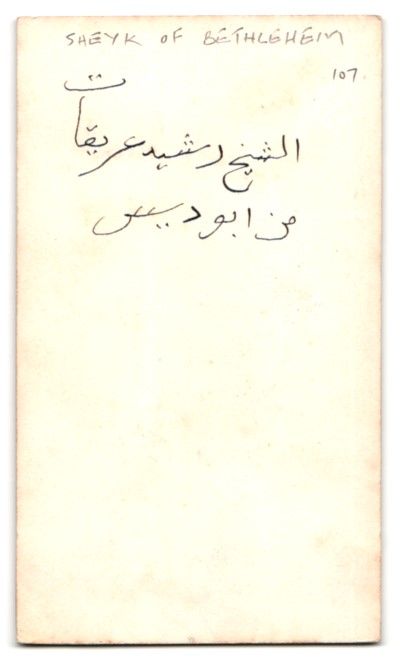 SHEYK OF BETHLEHEIM
107
الشيخ رشيد عريقات
من ابو ديس